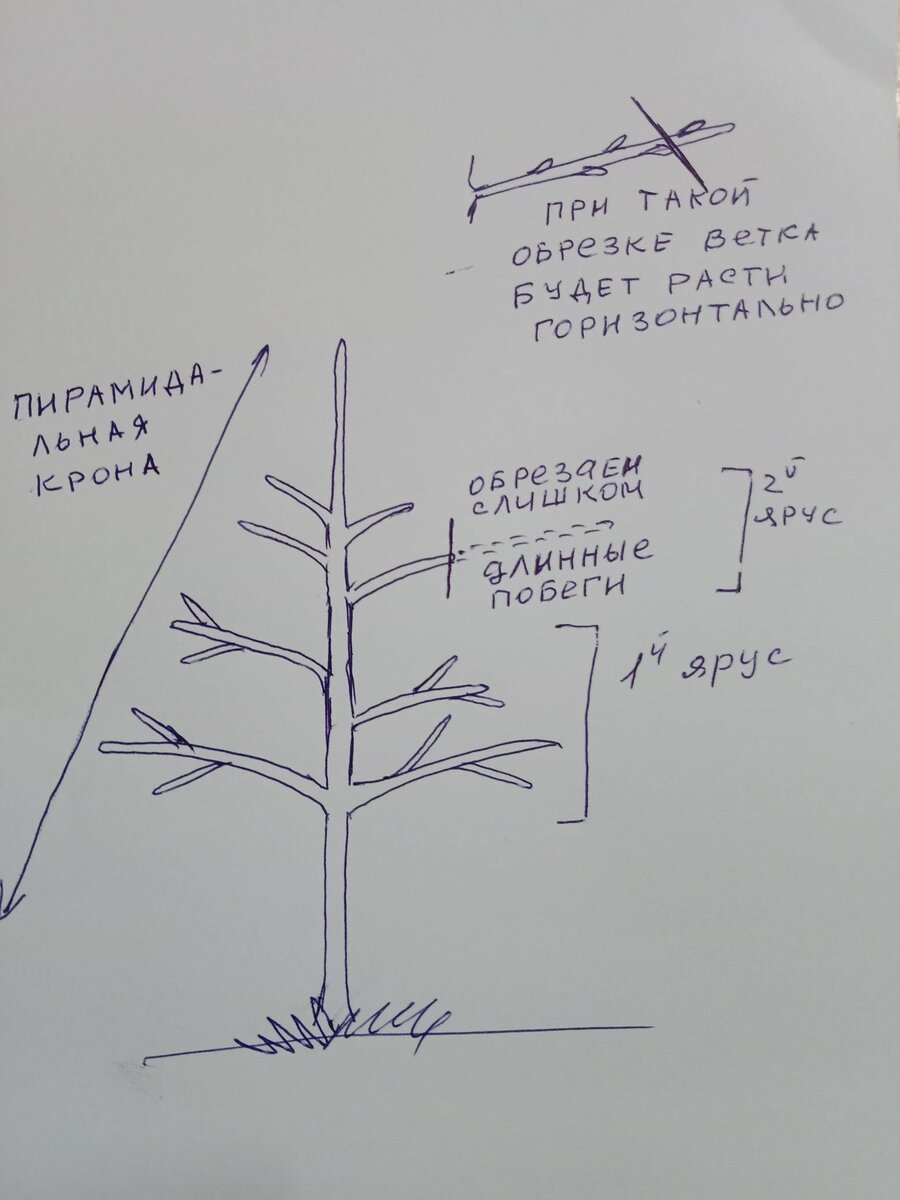 ПРИ ТАКОЙ
ОБРЕЗКЕ ВЕТКА
БУДЕТ РАСТИ
ГОРИЗОНТАЛЬНО
ПИРАМИДА-
ЛЬНАЯ
КРОНА
ОБРЕЗАЕМ
СЛИШКОМ
ДЛИННЫЕ
ПОБЕГИ
2й
ЯРУС
1й ярус